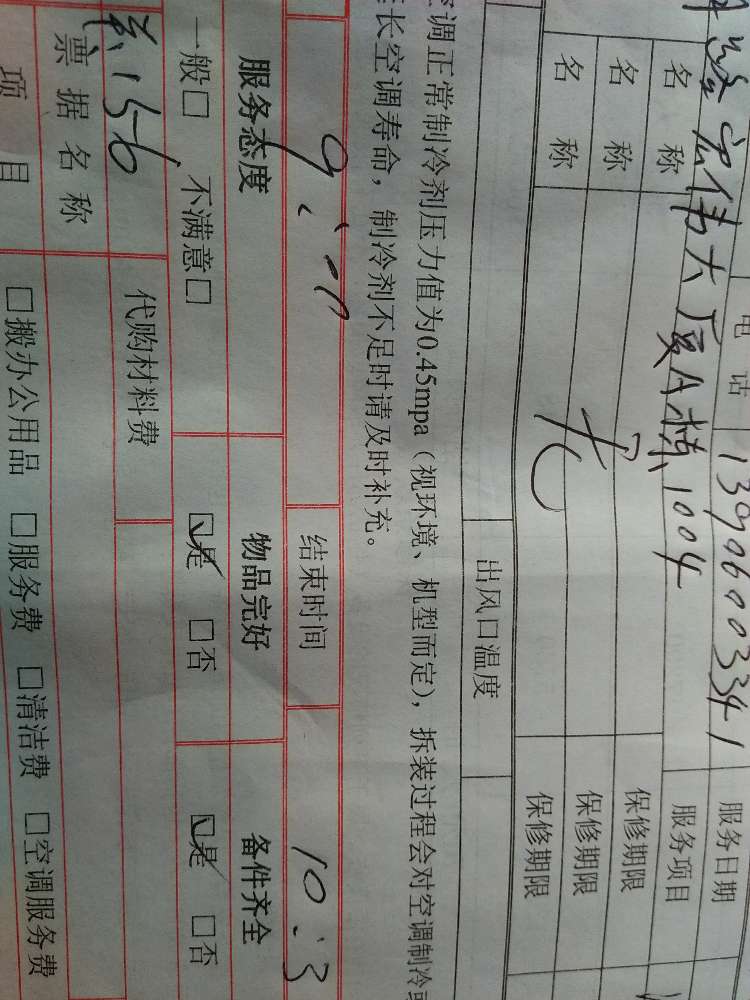 电话 13906003341 服务日期
宏伟大厦A栋1004 服务项目
名称 保修期限
名称 保修期限
名称 无 保修期限
出风口温度
调正常制冷剂压力值为0.45mpa（视环境、机型而定），拆装过程会对空调制冷
长空调寿命，制冷剂不足时请及时补充。
9:00 结束时间 10:3
服务态度 物品完好 备件齐全
一般□ 不满意□ ☑是 □否 ☑是 □否
代购材料费
票据名称
项目 □搬办公用品 □服务费 □清洁费 □空调服务费